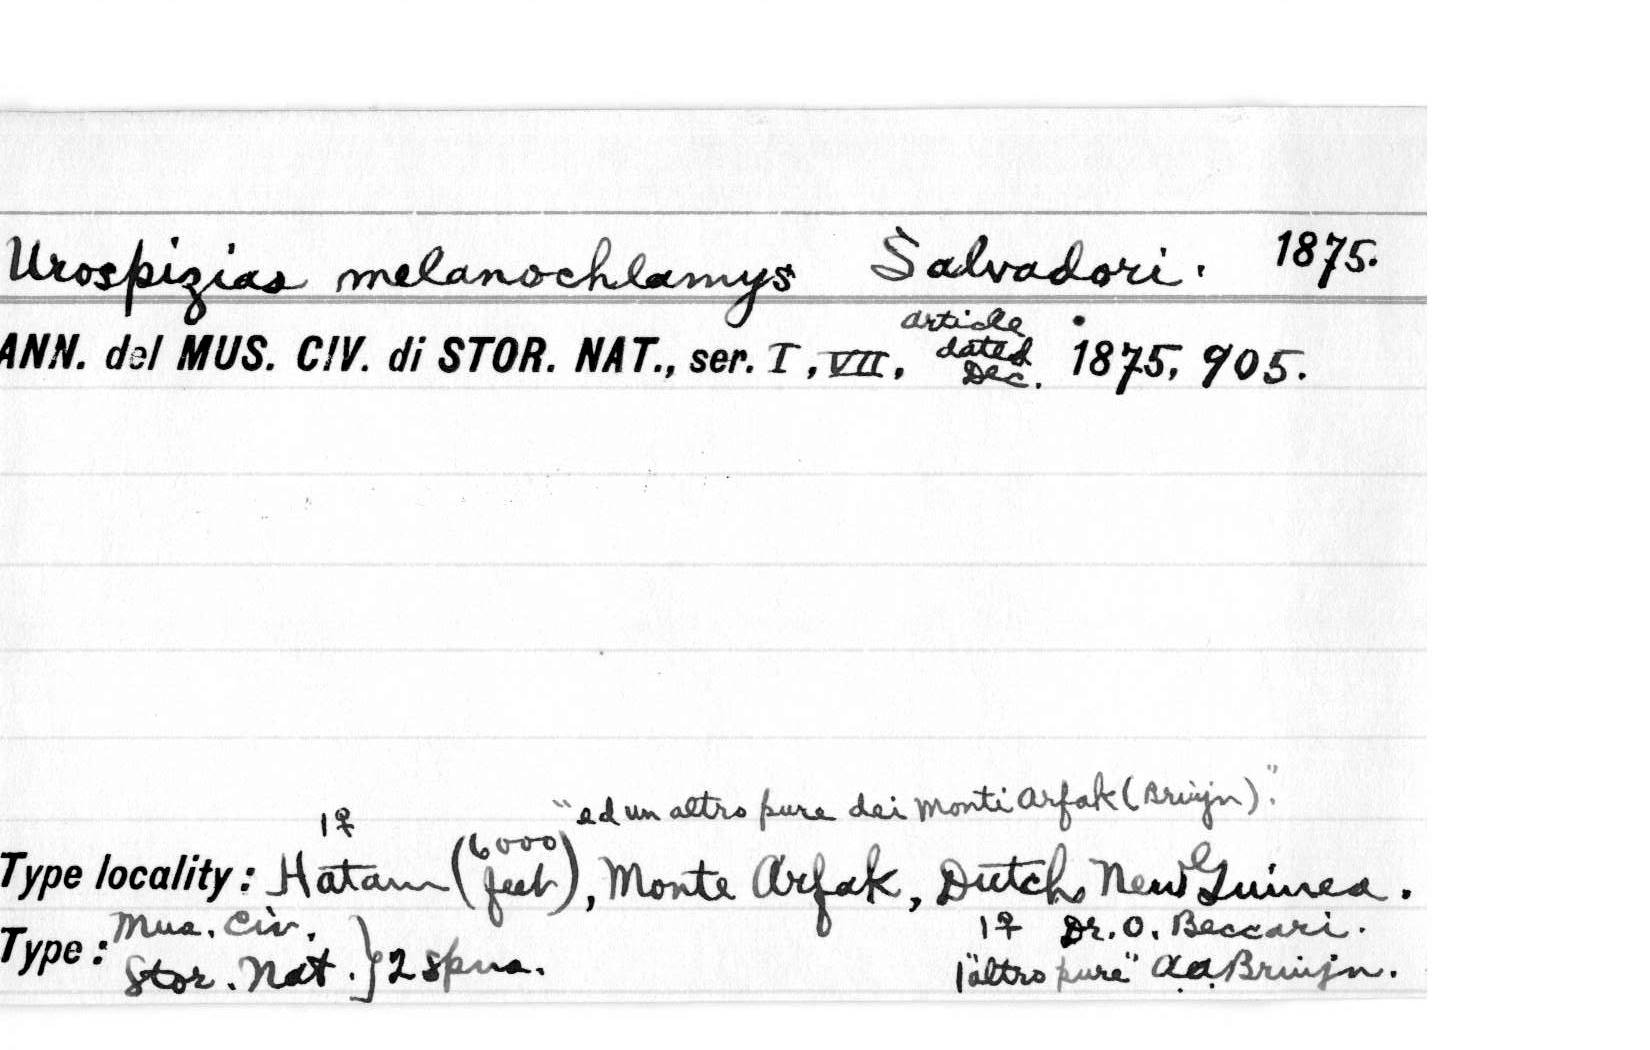 Urospizias melanochlamys Salvadori. 1875.
ANN. del MUS. CIV. di STOR. NAT., ser. I, VII, article dated Dec. 1875, 905.
"ed un altro pure dei Monti Arfak (Bruijn)."
1♀
Type locality: Hatam (6000 feet), Monte Arfak, Dutch New Guinea.
Type: Mus. Civ. Stor. Nat. } 2 spms.
1♀ Dr. O. Beccari.
1 "altro pure" A.A. Bruijn.